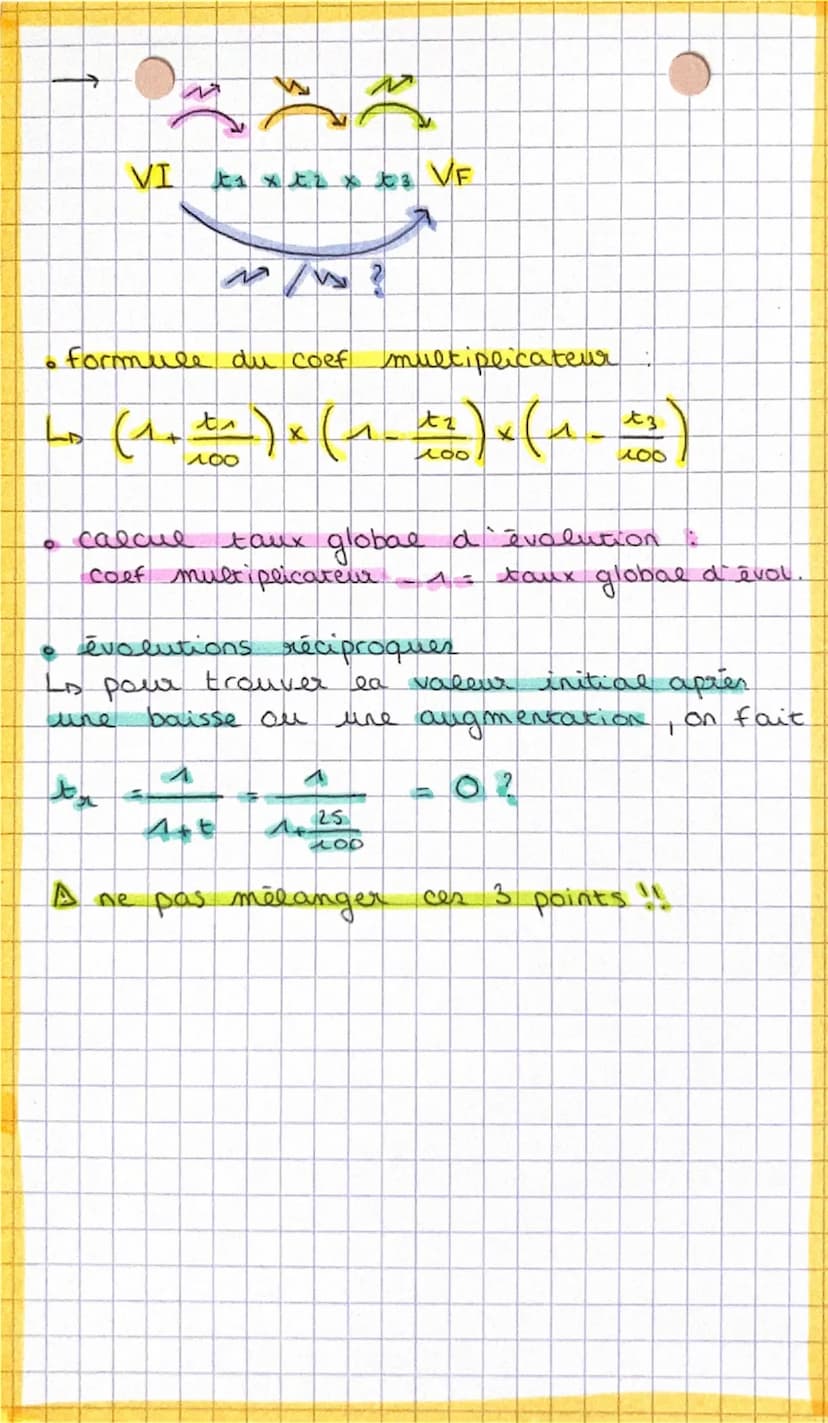 →
VI t1 × t2 × t3 VF
↗ / ↘ ?
• formule du coef multiplicateur :
↳ (1+ t1/100) × (1- t2/100) × (1- t3/100)
• calcul taux global d'évolution :
coef multiplicateur - 1 = taux global d'évol.
• évolutions réciproques
↳ pour trouver la valeur initial après
une baisse ou une augmentation, on fait
tr = 1/(1+t) = 1/(1+ 25/100) = 0 ?
⚠ ne pas mélanger ces 3 points !!